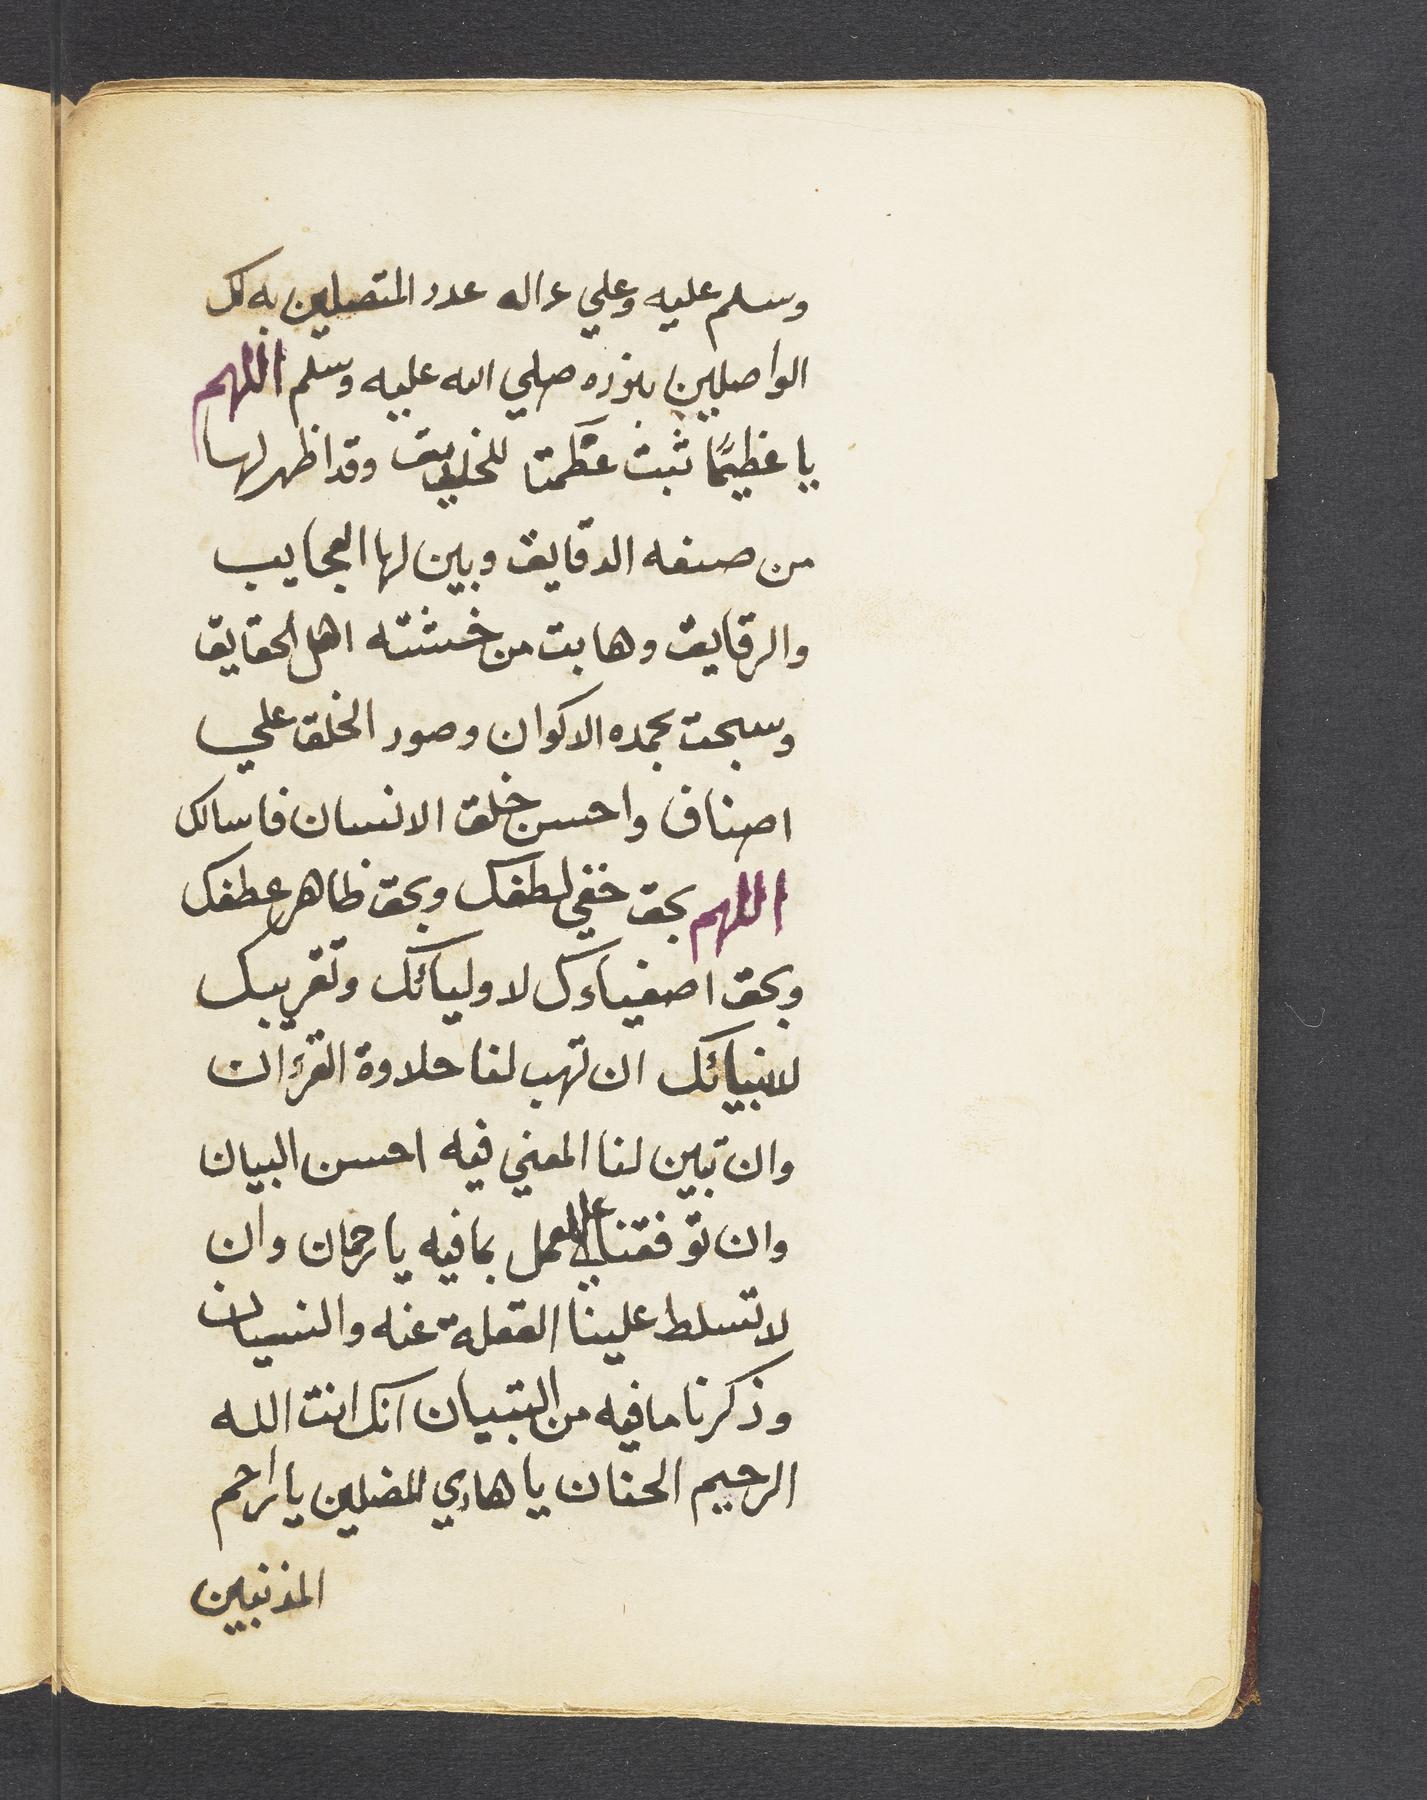 وسلم عليه وعلي ءاله عدد المتصلين به كل
الواصلين بنوره صلي الله عليه وسلم اللهم
يا عظيمًا ثبت عظمتا للخليقة وقد اظهر لها
من صنعه الدقايق وبين لها العجايب
والرقايق وهابت من خشته اهل الحقايق
وسبحت بحمده الاكوان وصور الخلق علي
اصناف واحسن خلق الانسان فاسالك
اللهم بحق خفي لطفك وبحق ظاهر عطفك
وبحق اصفياءك لاوليائك وتقريبك
لانبيائك ان تهب لنا حلاوة القرءان
وان تبين لنا المعني فيه احسن البيان
وان توفقنا علي العمل بما فيه يا رحمان وان
لا تسلط علينا الغفلة عنه والنسيان
وذكرنا ما فيه من التبيان انك انت الله
الرحيم الحنان يا هادي المضلين يا راحم
المذنبين